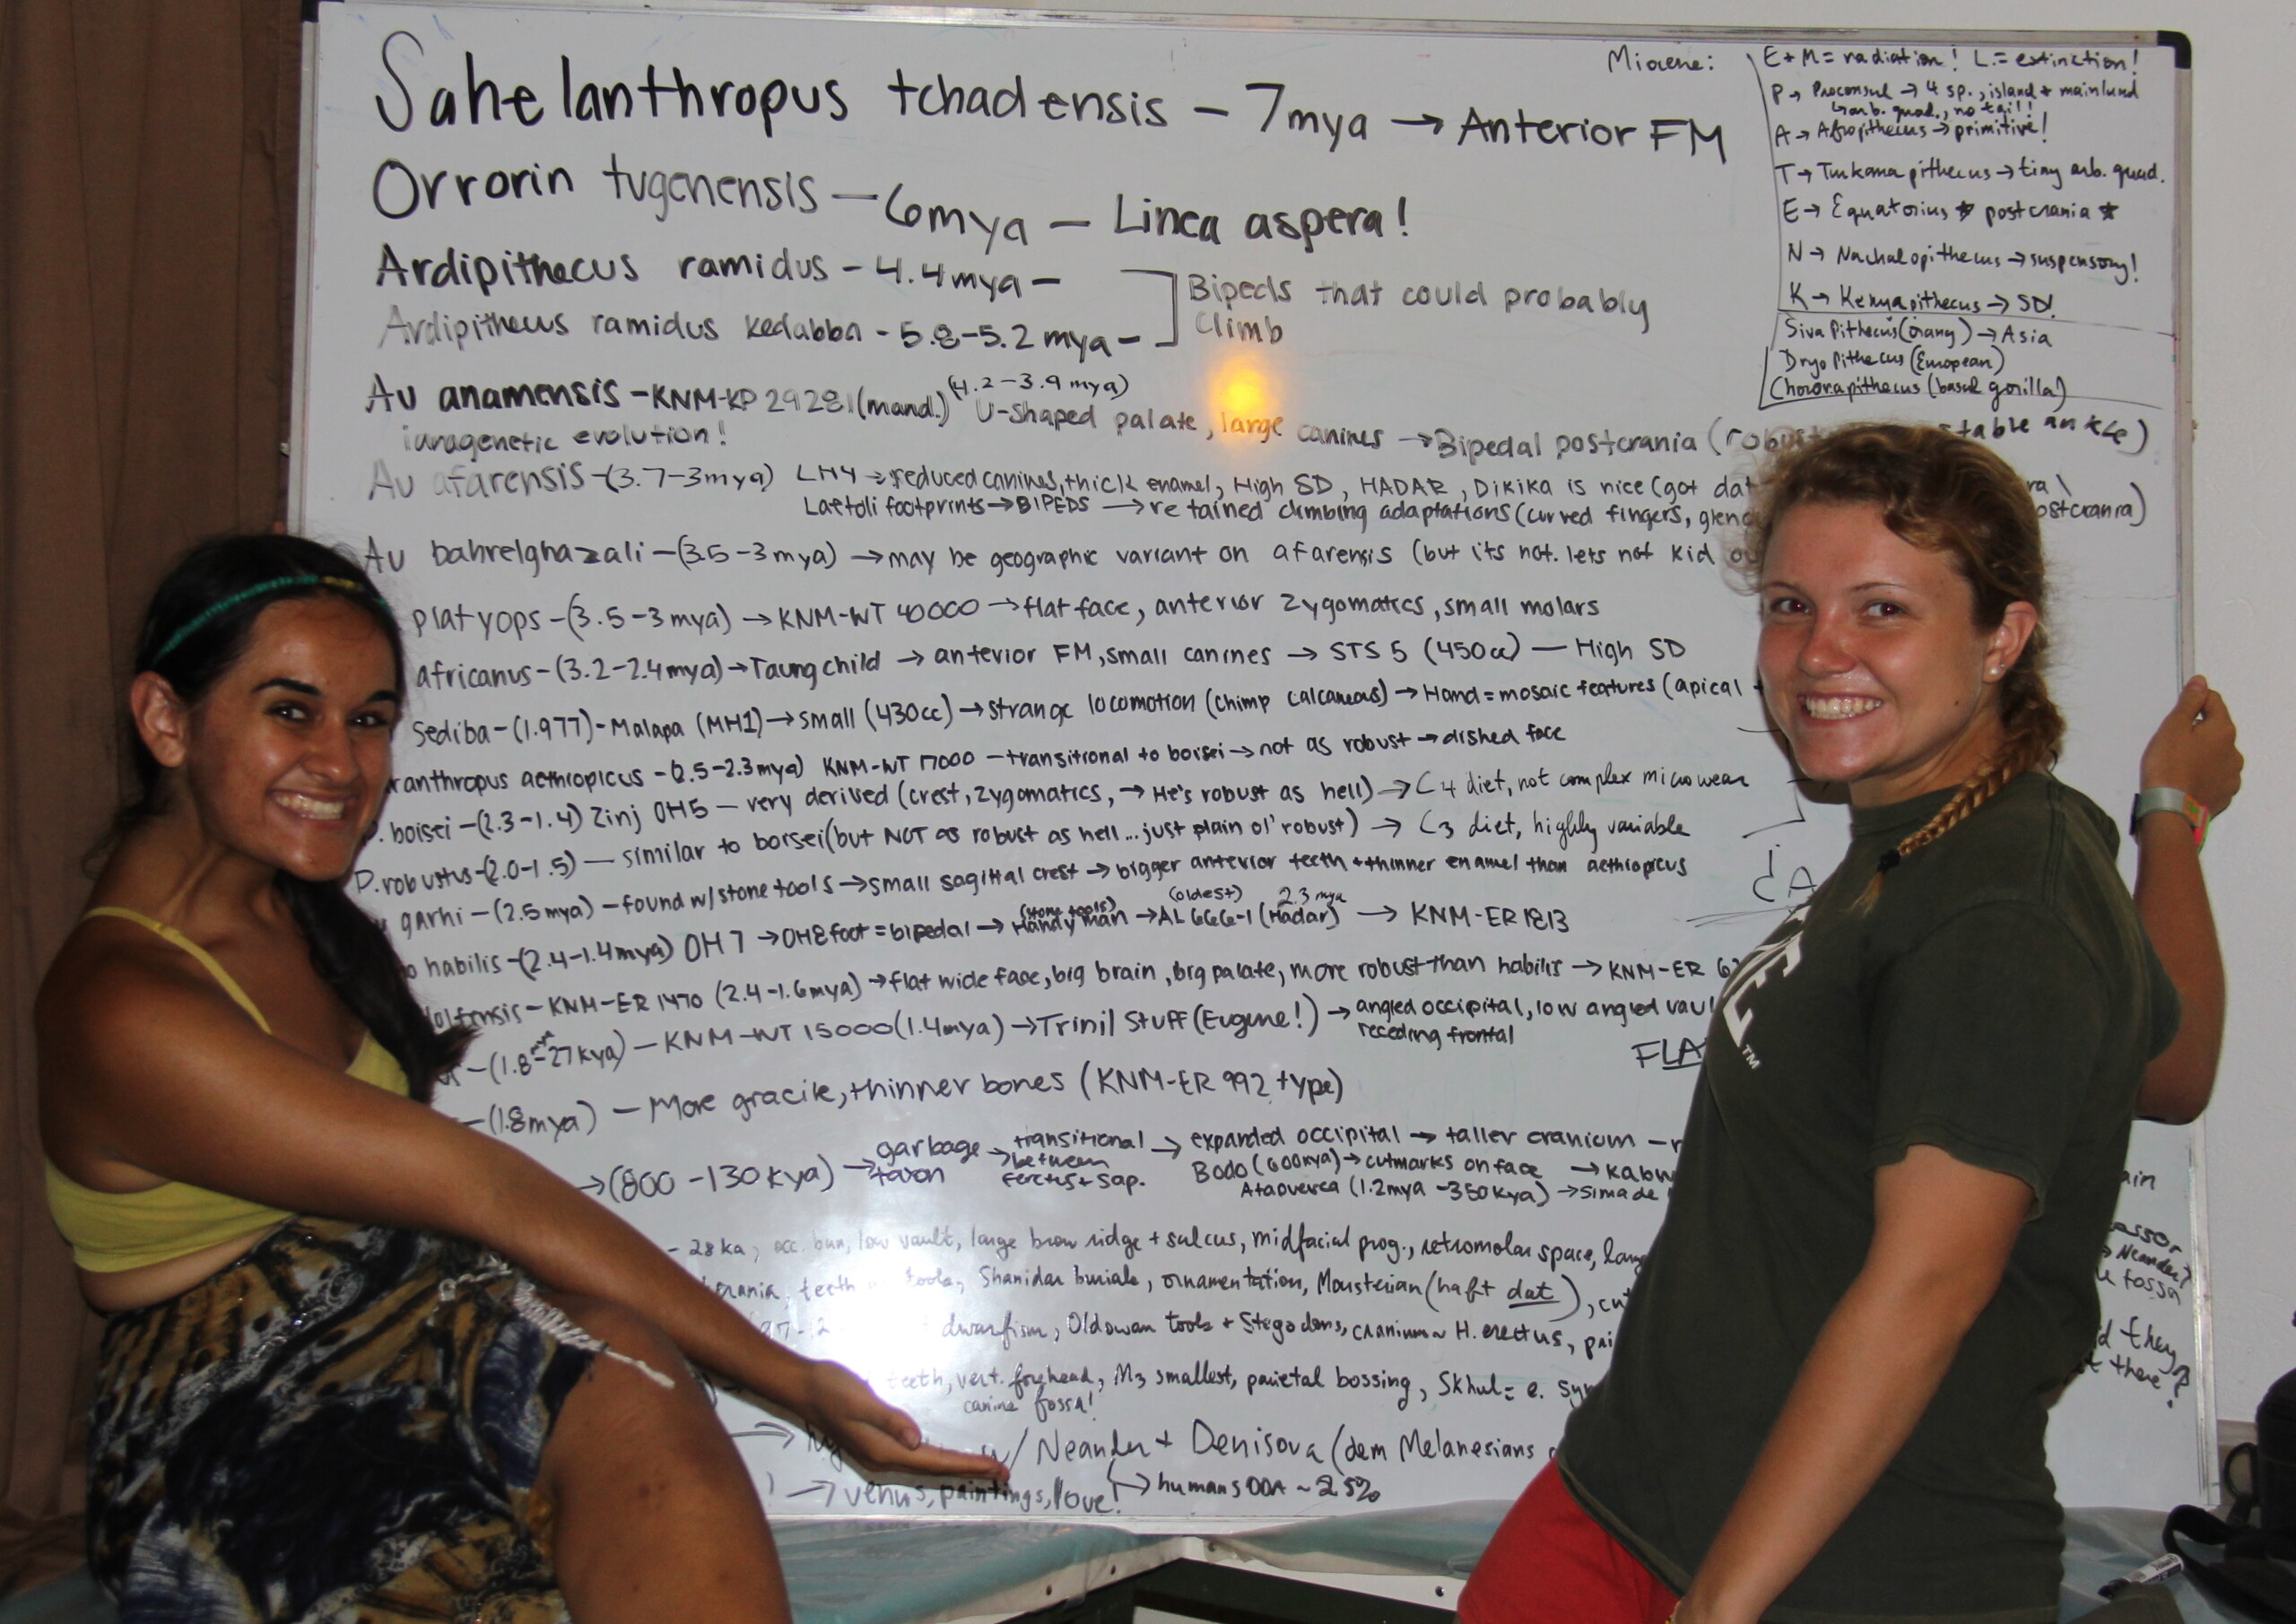 Sahelanthropus tchadensis - 7mya → Anterior FM
Orrorin tugenensis - 6mya - Linea aspera!
Ardipithecus ramidus - 4.4mya -
Ardipithecus ramidus kedabba - 5.8-5.2 mya -
Bipeds that could probably
climb
Au anamensis - KNM-KP 29281 (mand.) (4.2-3.9 mya) U-shaped palate, large canines → Bipedal postcrania (robust stable ankle)
anagenetic evolution!
Au afarensis - (3.7-3mya) LH4 → reduced canines, thick enamel, High SD, HADAR, DIKIKA is nice (got dat
Laetoli footprints → BIPEDS → retained climbing adaptations (curved fingers, postcrania)
Au bahrelghazali - (3.5-3mya) → may be geographic variant on afarensis (but its not. lets not kid
platyops - (3.5-3mya) → KNM-WT 40000 → flat face, anterior zygomatics, small molars
africanus - (3.2-2.4mya) → Taung child → anterior FM, small canines → STS 5 (450cc) - High SD
Sediba - (1.977) - Malapa (MH1) → small (430cc) → strange locomotion (chimp calcaneus) → Hand = mosaic features (apical
ranthropus aethiopicus - (2.5-2.3mya) KNM-WT 17000 - transitional to boisei → not as robust → dished face
P. boisei - (2.3-1.4) Zinj OH5 - very derived (crest, zygomatics, → He's robust as hell) → C4 diet, not complex microwear
P. robustus - (2.0-1.5) - similar to boisei (but NOT as robust as hell... just plain ol' robust) → C3 diet, highly variable
garhi - (2.5mya) - found w/ stone tools → small sagittal crest → bigger anterior teeth + thinner enamel than aethiopicus
o habilis - (2.4-1.4mya) OH 7 → OH8 foot = bipedal → (stone tools) Handy man → (oldest) AL 666-1 (Hadar) 2.3 mya → KNM-ER 1813
dolfensis - KNM-ER 1470 (2.4-1.6mya) → flat wide face, big brain, big palate, more robust than habilis → KNM-ER
- (1.8mya-27kya) - KNM-WT 15000 (1.4mya) → Trinil Stuff (Eugene!) → angled occipital, low angled
receding frontal
FLA
- (1.8mya) - More gracile, thinner bones (KNM-ER 992 type)
→ (800-130kya) → garbage taxon → transitional between erectus + sap. → expanded occipital → taller cranium
Bodo (600kya) → cutmarks on face → Kabw
Atapuerca (1.2mya-350kya) → Sima de
- 28ka, occ. bun, low vault, large brow ridge + sulcus, midfacial prog., retromolar space,
crania, teeth tools, Shanidar burials, ornamentation, Mousterian (haft dat),
dwarfism, Oldowan tools + Stegodons, cranium ~ H. erectus,
teeth, vert. forehead, M3 smallest, parietal bossing, Skhul =
canine fossa!
w/ Neander + Denisova (dem Melanesians
→ venus, paintings, love! → humans OOA ~ 2.5%
Miocene:
E+M = radiation! L = extinction!
P → Proconsul → 4 sp., island + mainland
↳ arb. quad., no tail!
A → Afropithecus → primitive!
T → Turkanapithecus → tiny arb. quad.
E → Equatorius ★ postcrania ★
N → Nacholapithecus → suspensory!
K → Kenyapithecus → SD!
Sivapithecus (orang) → Asia
Dryopithecus (European)
Chororapithecus (basal gorilla)
→ Neander?
fossa
they
there?
TM